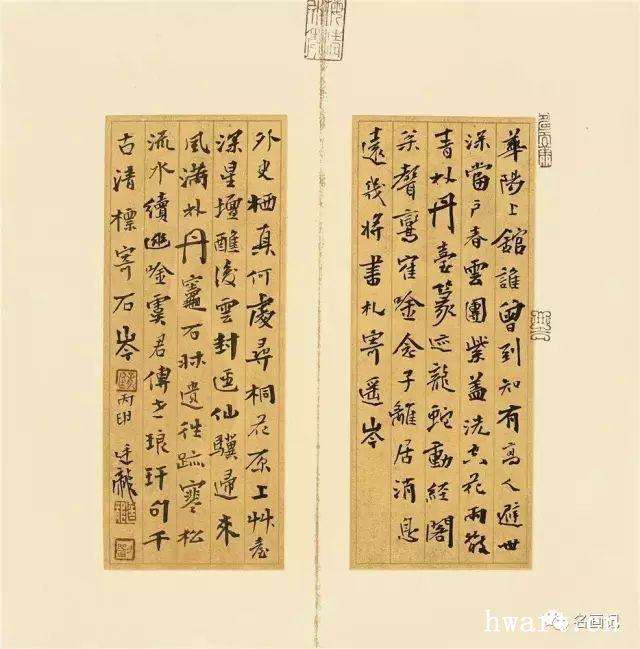 華陽上館誰曾到知有高人避世
深當戶春雲團紫蓋洗空花雨散
青林丹臺篆迹龍蛇動經閣
聲鸞隺唫念子離居消息
遠幾將書札寄遥岑
外史栖真何處尋桐花原上艸臺
深星壇醮後雲封匝仙驥歸来
風滿林丹竈石牀遺往跡寒松
流水續唫虞君傳琅玕句千
古清標寄石岑
丙申
名画记
hwart.cn